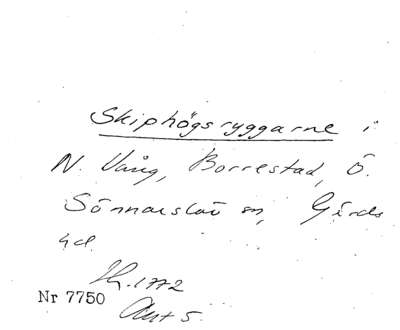 Skiphögsryggarne i
N. Vång, Borrestad, Ö.
Sönnarslöv sn, Gärds
hd.
1772
Nr 7750
Akt 5.